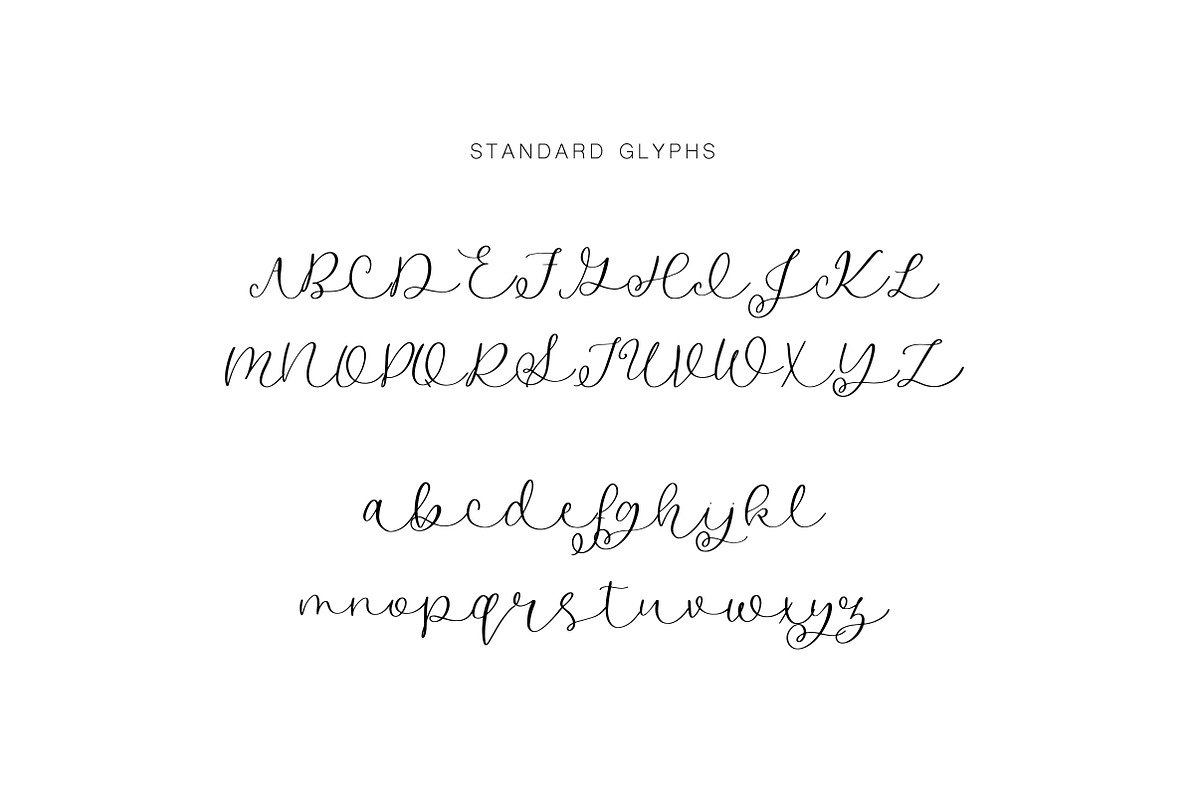 STANDARD GLYPHS
ABCDEFGHIJKL
MNOPQRSTUVWXYZ
abcdefghijkl
mnopqrstuvwxyz